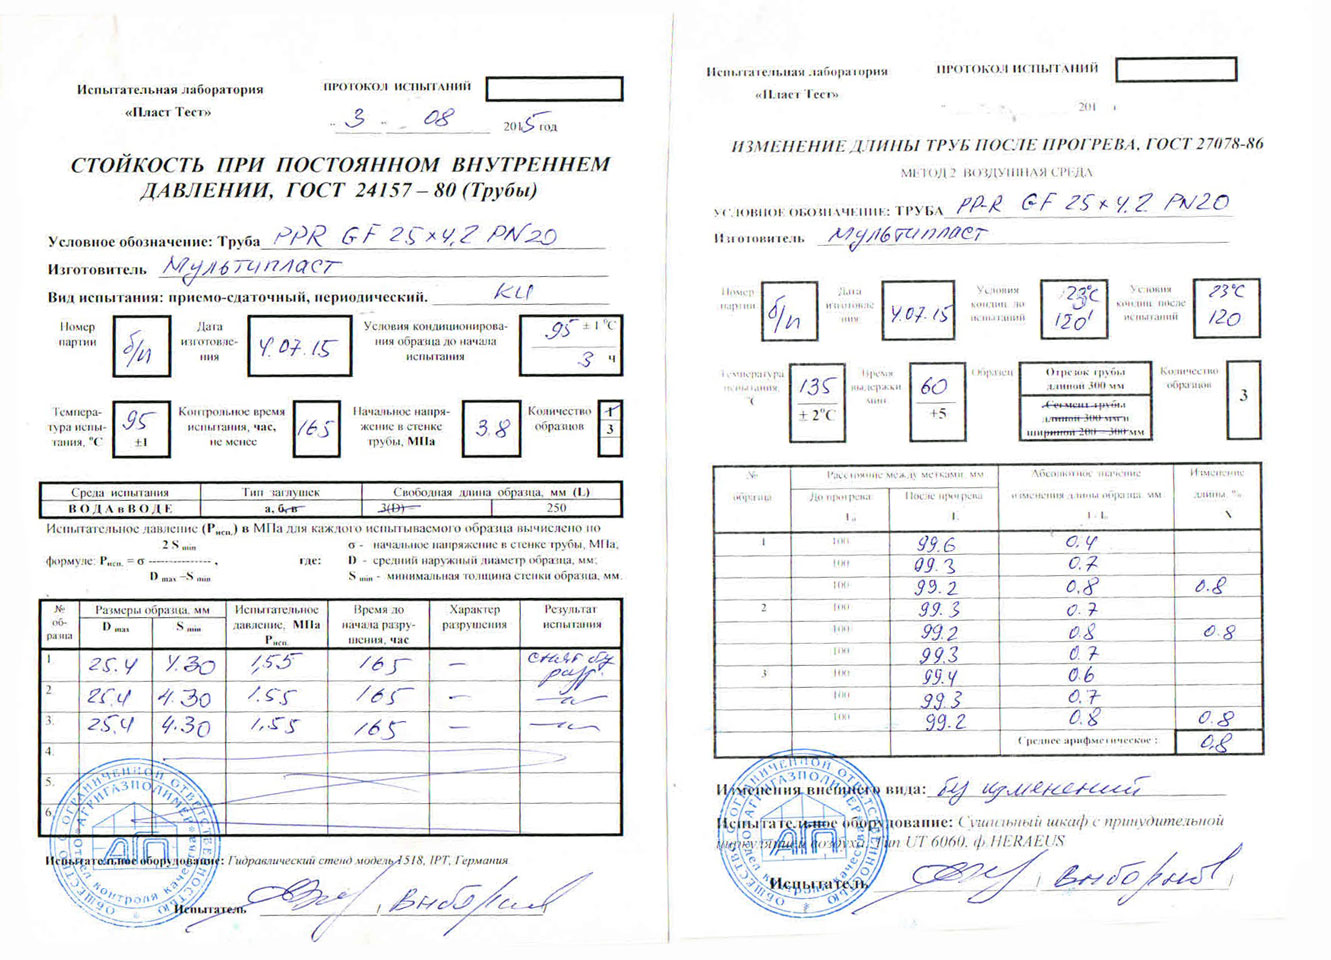 Испытательная лаборатория
«Пласт Тест»
ПРОТОКОЛ ИСПЫТАНИЙ
3 08 2015 год
СТОЙКОСТЬ ПРИ ПОСТОЯННОМ ВНУТРЕННЕМ
ДАВЛЕНИИ, ГОСТ 24157 – 80 (Трубы)
Условное обозначение: Труба PPR GF 25×4,2 PN20
Изготовитель Мультипласт
Вид испытания: приемо-сдаточный, периодический. КИ
Номер партии б/п
Дата изготовле-ния 4.07.15
Условия кондиционирова-ния образца до начала испытания 95 ± 1 °C 3 ч
Темпера-тура испы-тания, °C 95 ±1
Контрольное время испытания, час, не менее 165
Начальное напря-жение в стенке трубы, МПа 3.8
Количество образцов 1 3
Среда испытания Тип заглушек Свободная длина образца, мм (L)
ВОДА в ВОДЕ а, б, в 3(D) 250
Испытательное давление (Рисп.) в МПа для каждого испытываемого образца вычислено по
2 S min σ - начальное напряжение в стенке трубы, МПа,
формуле: Рисп. = σ --------------- , где: D - средний наружный диаметр образца, мм;
D max –S min S min - минимальная толщина стенки образца, мм.
№ об-разца Размеры образца, мм D max S min Испытательное давление, МПа Рисп. Время до начала разру-шения, час Характер разрушения Результат испытания
1 25.4 4.30 1,55 165 – снят бу разр.
2 25.4 4.30 1.55 165 – –"–
3. 25.4 4.30 1,55 165 – –"–
4.
5.
6.
Испытательное оборудование: Гидравлический стенд модель 1518, IPT, Германия
Испытатель Выборнов
ОБЩЕСТВО С ОГРАНИЧЕННОЙ ОТВЕТСТВЕННОСТЬЮ
«АГРИГАЗПОЛИМЕР»
АГП
отдел контроля качества
Испытательная лаборатория
«Пласт Тест»
ПРОТОКОЛ ИСПЫТАНИЙ
201 г
ИЗМЕНЕНИЕ ДЛИНЫ ТРУБ ПОСЛЕ ПРОГРЕВА, ГОСТ 27078-86
МЕТОД 2 ВОЗДУШНАЯ СРЕДА
УСЛОВНОЕ ОБОЗНАЧЕНИЕ: ТРУБА PP-R GF 25×4,2 PN20
Изготовитель Мультипласт
Номер партии б/п
Дата изготовле ния 4.07.15
Условия кондиц до испытаний 23°C 120'
Условия кондиц после испытаний 23°C 120
Температура испытания, °C 135 ± 2°C
Время выдержки мин 60 +5
Образец Отрезок трубы длиной 300 мм
Сегмент трубы длиной 300 мм и шириной 200 - 300 мм
Количество образцов 3
№ образца Расстояние между метками, мм До прогрева L₀ После прогрева L Абсолютное значение изменения длины образца, мм Изменение длины, % X
1 100 99.6 0.4
100 99.3 0.7
100 99.2 0.8 0.8
2 100 99.3 0.7
100 99.2 0.8 0.8
100 99.3 0.7
3 100 99.4 0.6
100 99.3 0.7
100 99.2 0.8 0.8
Среднее арифметическое : 0.8
Изменения внешнего вида: бу изменений
Испытательное оборудование: Сушильный шкаф с принудительной
циркуляцией воздуха, тип UT 6060, ф. HERAEUS
Испытатель Выборнов
ОБЩЕСТВО С ОГРАНИЧЕННОЙ ОТВЕТСТВЕННОСТЬЮ
«АГРИГАЗПОЛИМЕР»
АГП
отдел контроля качества